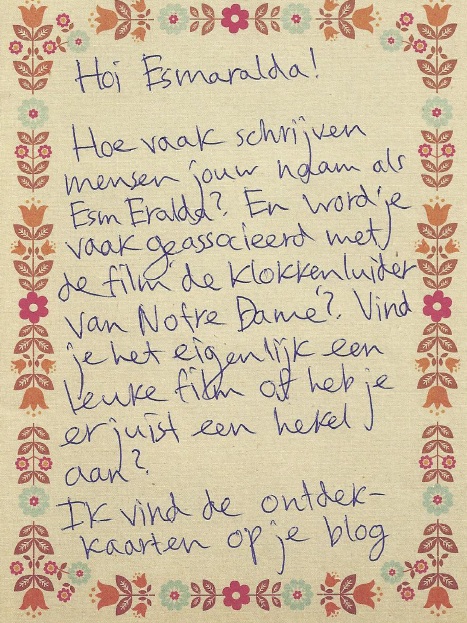 Hoi Esmaralda!
Hoe vaak schrijven
mensen jouw naam als
Esm Eralda? En word je
vaak geassocieerd met
de film 'de klokkenluider
van Notre Dame'? Vind
je het eigenlijk een
leuke film of heb je
er juist een hekel
aan?
Ik vind de ontdek-
kaarten op je blog